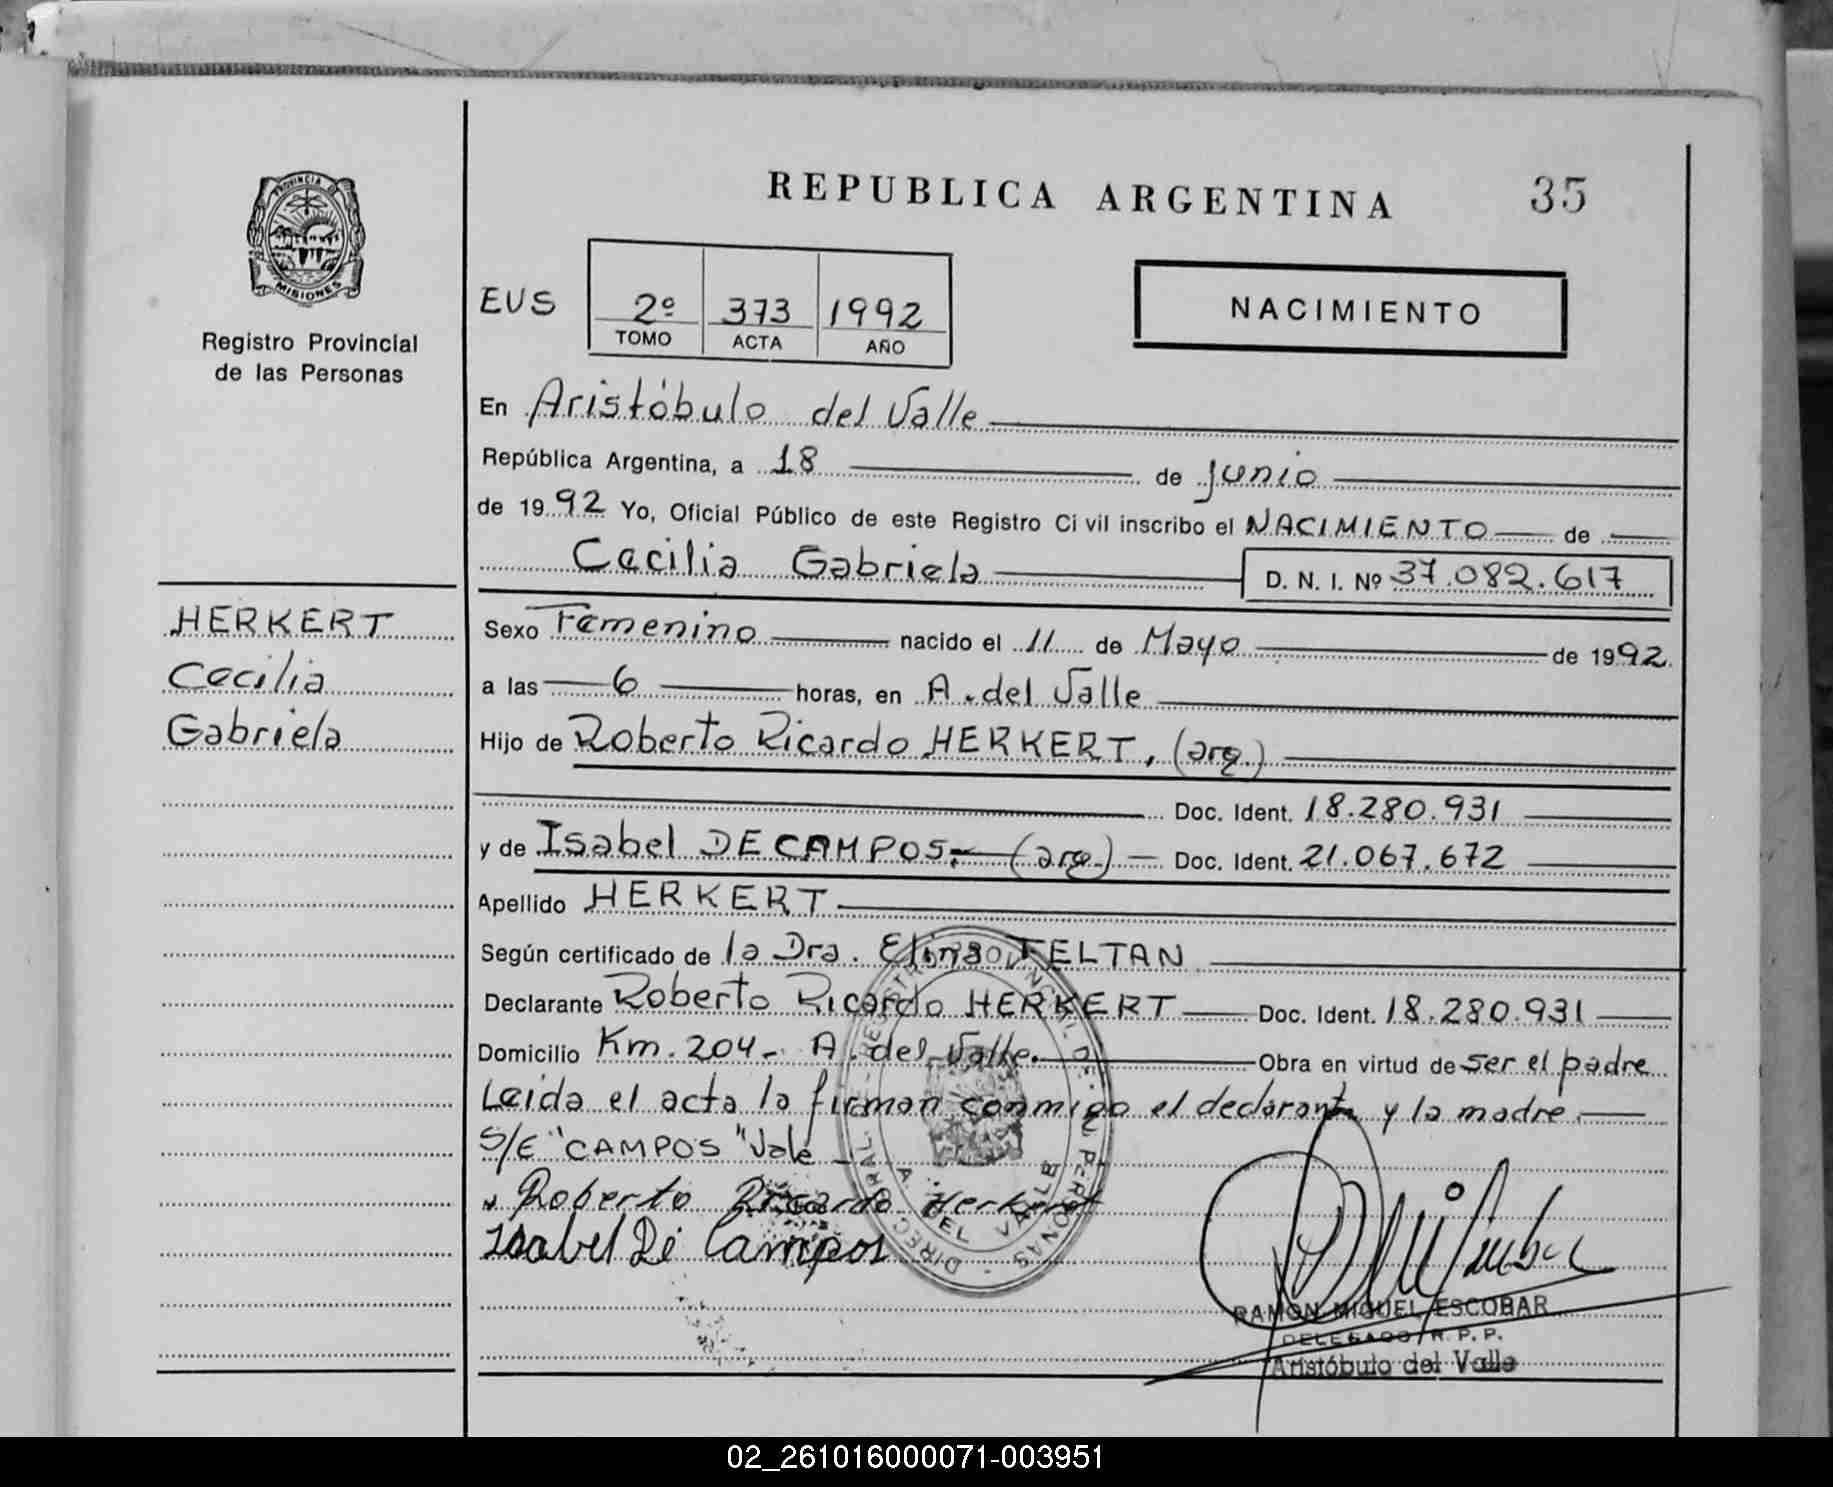 REPUBLICA ARGENTINA 35
PROVINCIA DE
MISIONES
Registro Provincial
de las Personas
EUS 2º 373 1992
TOMO ACTA AÑO
NACIMIENTO
En Aristóbulo del Valle
República Argentina, a 18 de junio
de 1992 Yo, Oficial Público de este Registro Ci vil inscribo el NACIMIENTO de
Cecilia Gabriela D. N. I. Nº 37.082.617
HERKERT
Cecilia
Gabriela
Sexo Femenino nacido el 11 de Mayo de 1992
a las 6 horas, en A. del Valle
Hijo de Roberto Ricardo HERKERT, (arg.)
Doc. Ident. 18.280.931
y de Isabel DE CAMPOS.- (arg.) Doc. Ident. 21.067.672
Apellido HERKERT
Según certificado de la Dra. Elina FELTAN
Declarante Roberto Ricardo HERKERT Doc. Ident. 18.280.931
Domicilio Km. 204- A. del Valle. Obra en virtud de ser el padre
Leida el acta la firman conmigo el declarante y la madre.
S/E "CAMPOS" Vale
Roberto Ricardo Herkert
Isabel De Campos
A. DEL VALLE
RAMON MIGUEL ESCOBAR
DELEGADO R. P. P.
Aristóbulo del Valle
02_261016000071-003951